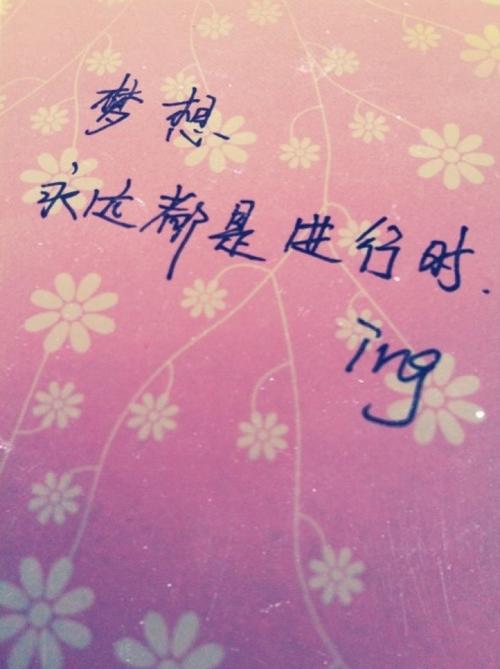 梦想
永远都是进行时.
ing